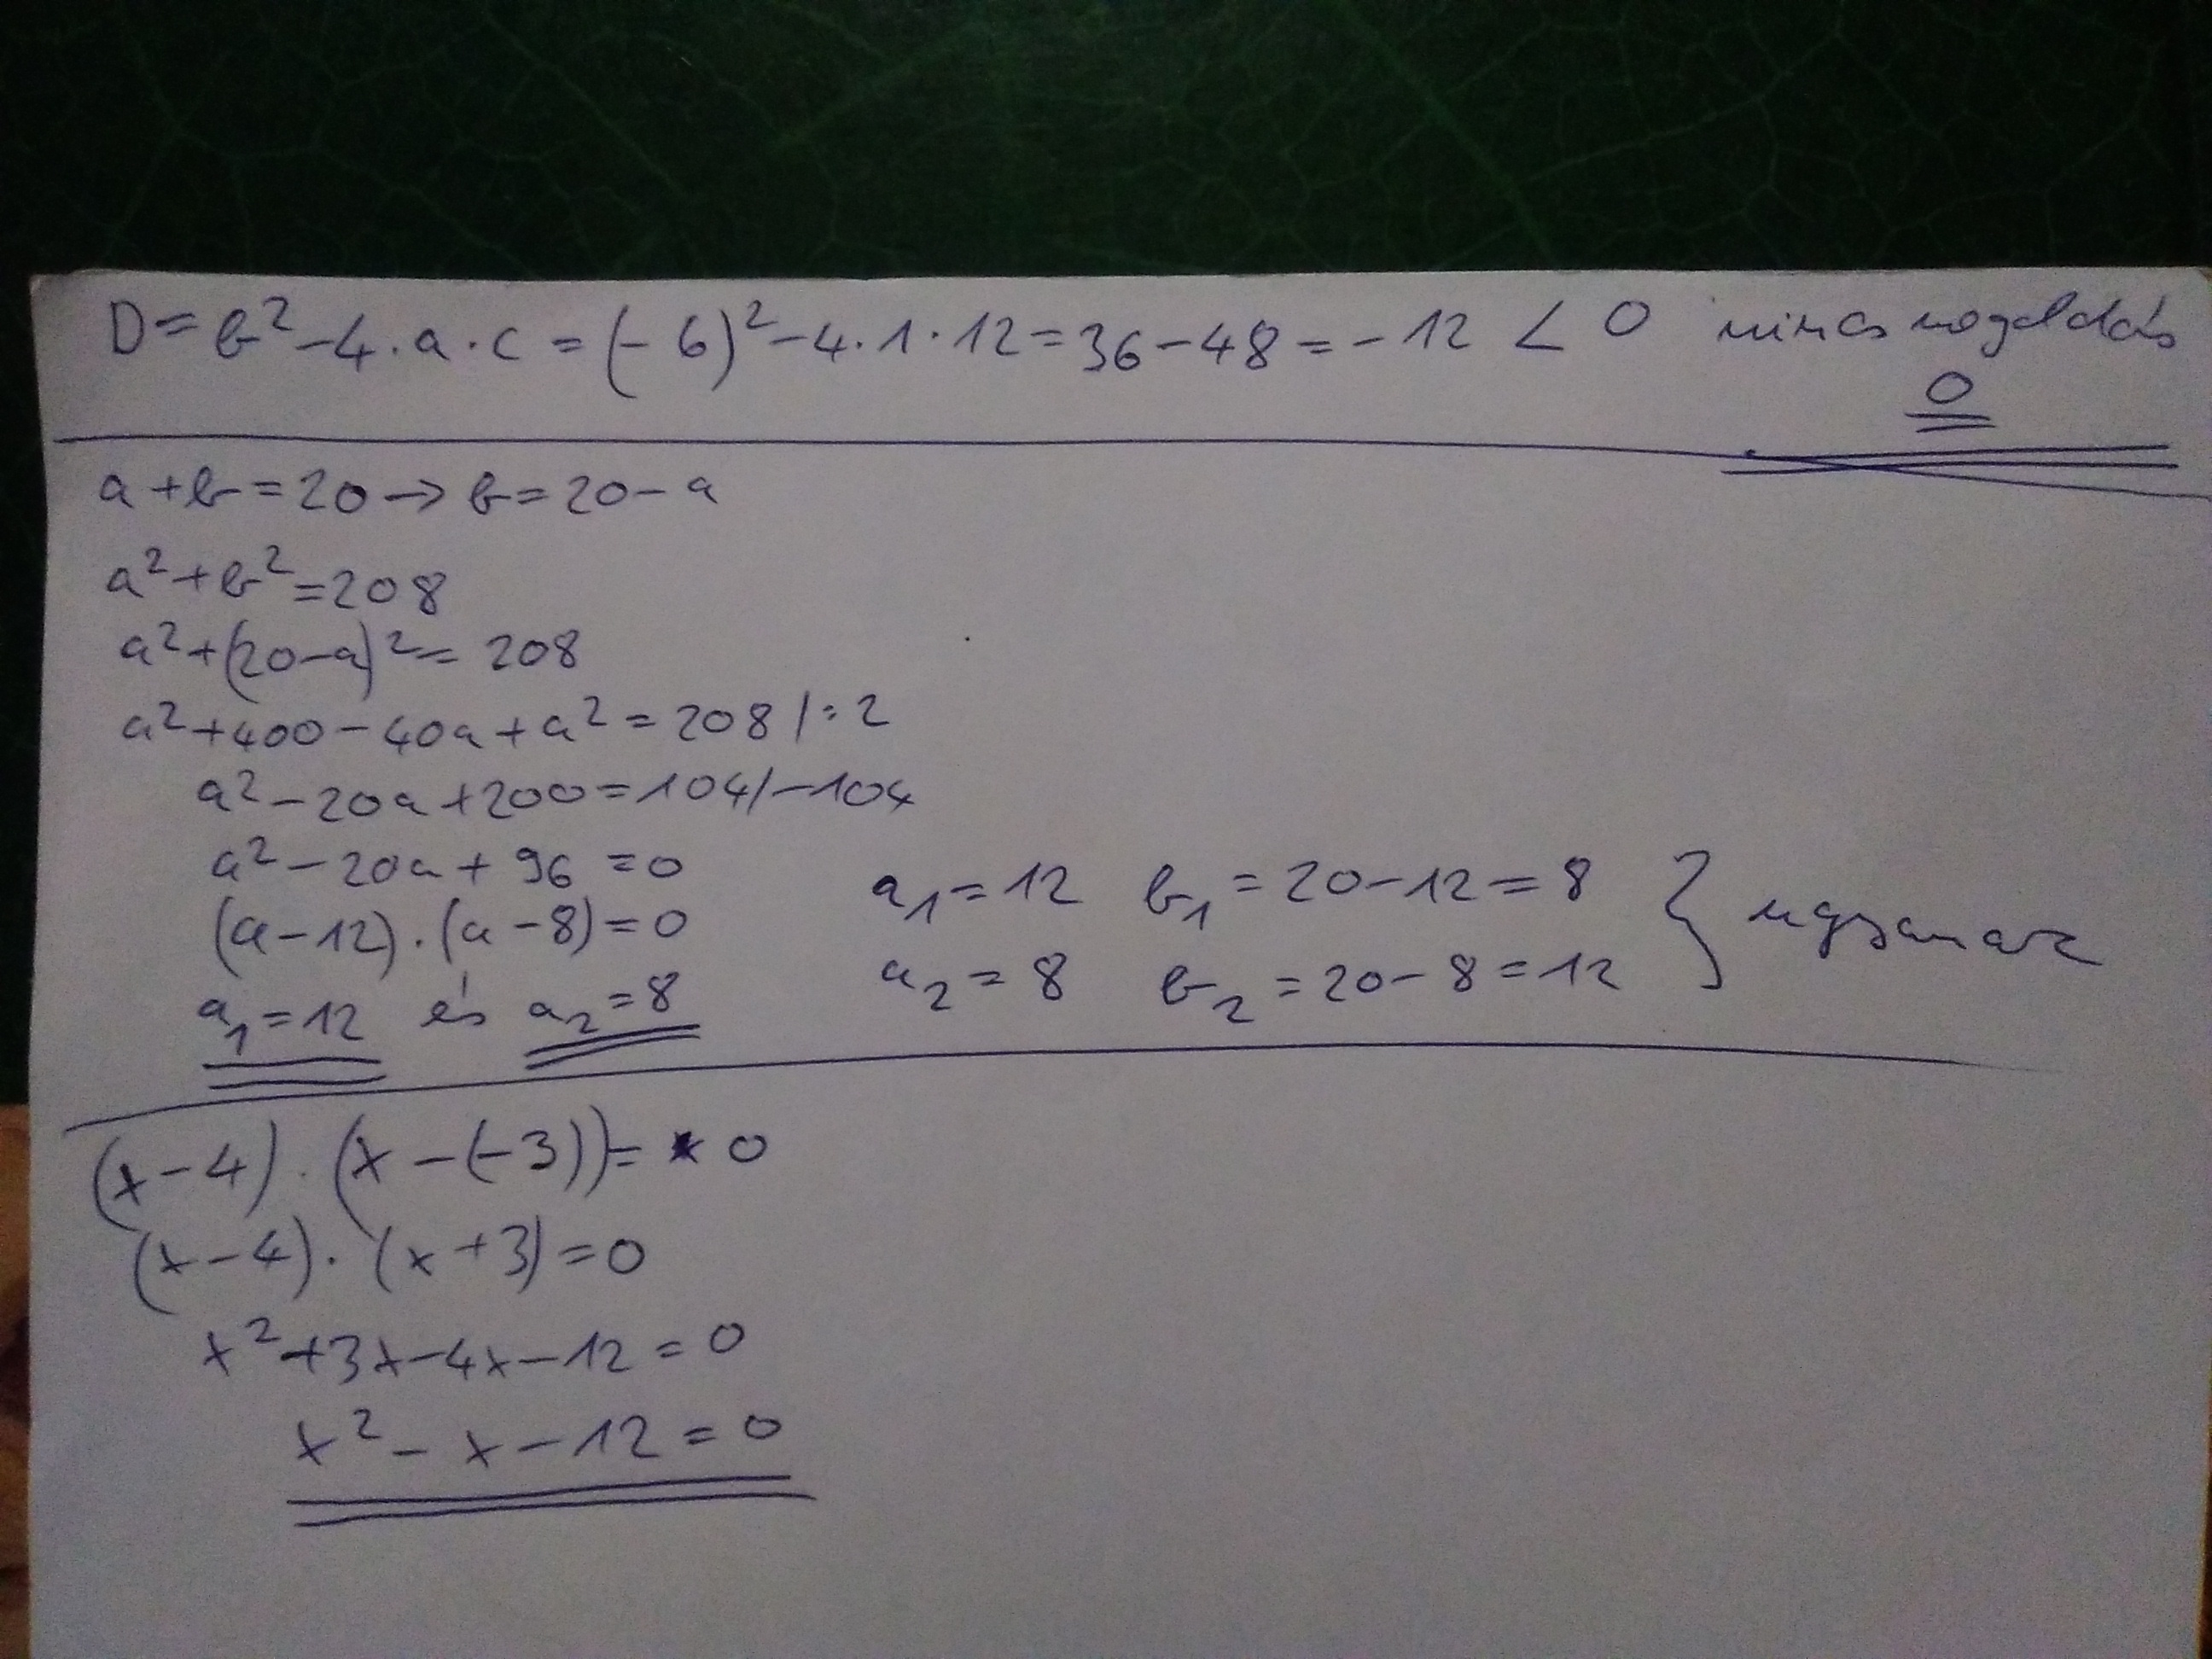 D = b² - 4 · a · c = (-6)² - 4 · 1 · 12 = 36 - 48 = -12 < 0 nincs megoldás
0
a + b = 20 → b = 20 - a
a² + b² = 208
a² + (20 - a)² = 208
a² + 400 - 40a + a² = 208 / : 2
a² - 20a + 200 = 104 / -104
a² - 20a + 96 = 0
(a - 12) · (a - 8) = 0
a₁ = 12 és a₂ = 8
a₁ = 12 b₁ = 20 - 12 = 8
a₂ = 8 b₂ = 20 - 8 = 12
} ugyanaz
(x - 4) · (x - (-3)) = 0
(x - 4) · (x + 3) = 0
x² + 3x - 4x - 12 = 0
x² - x - 12 = 0